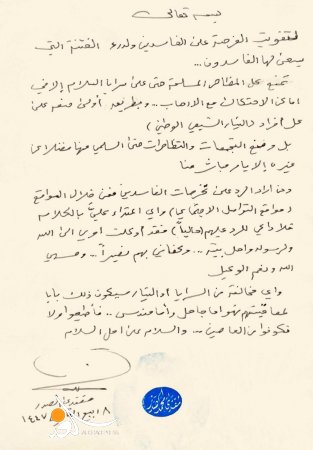 بسمه تعالى
لتفويت الفرصة على الفاسدين ولدرء الفتنة التي
يسعى لها الفاسدون...
تمنع كل المظاهر المسلحة حتى على سرايا السلام إلا في
أماكن الاحتكاك مع الإرهاب... وبطريقة أولى منعه على
كل أفراد (التيار الشيعي الوطني)
بل ومنع التجمعات والتظاهرات حتى السلمي منها فضلا عن
غيره إلا بأمر مباشر منا
ومن أراد الرد على مخرجات الفاسدين فمن خلال المواقع
(مواقع التواصل الاجتماعي) وأي اعتداء عليّ بالكلام
فلا داعي للرد عليهم (حالياً) فقد أوكلت أمري إلى الله
ولرسوله وأهل بيته... وكفاني بهم نصيراً... وحسبي
الله ونعم الوكيل
وأي مخالفة من السرايا أو التيار سيكون ذلك بابا
لمعاقبتهم فهو إما جاهل وإما مندس.. فأطيعوا ولا
تكونوا من العاصين.. والسلام على أهل السلام
مقتدى الصدر
٨ ربيع
١٤٤٧